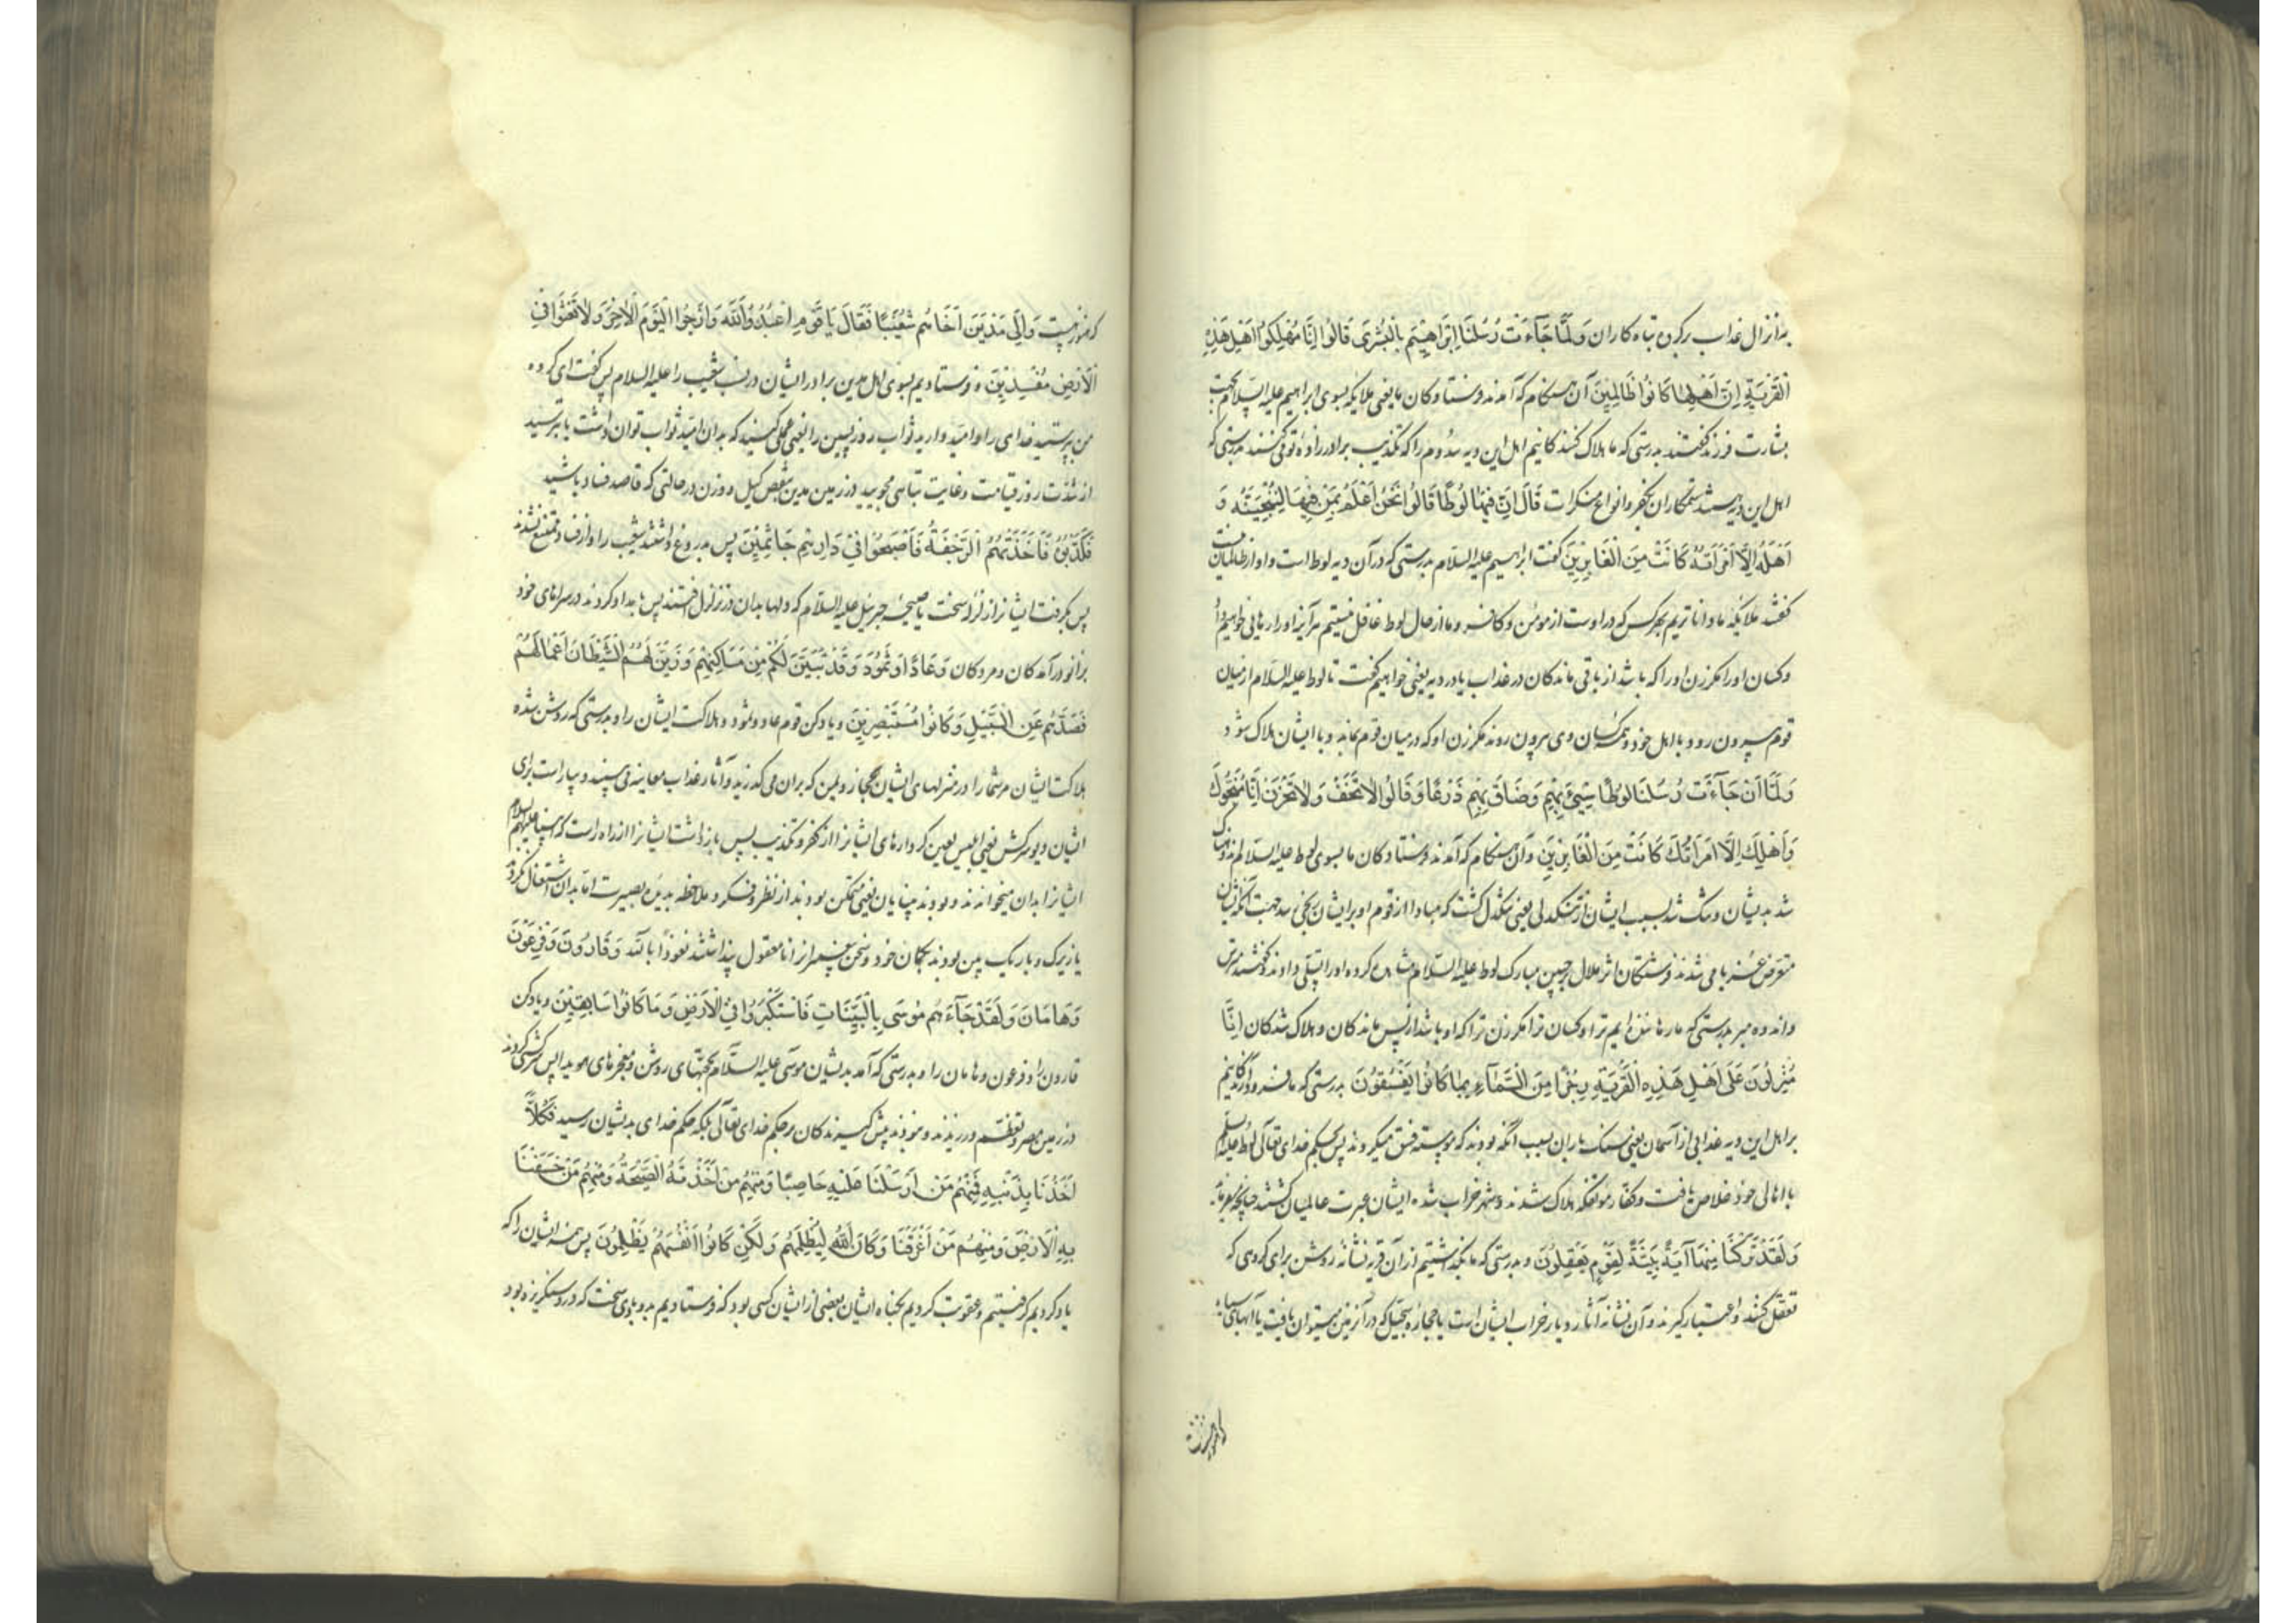 به انزال عذاب بر گروه تباه کاران وَلَمَّا جَآءَتْ رُسُلُنَا اِبْرَاهِيْمَ بِالْبُشْرٰى قَالُوْا اِنَّا مُهْلِكُوْا اَهْلِ هٰذِهِ
الْقَرْيَةِ اِنَّ اَهْلَهَا كَانُوْا ظَالِمِيْنَ آن هنگام که آمدند فرستادگان ما یعنی ملایکه بسوی ابراهیم علیه السلام بجهت
بشارت فرزند گفتند بدرستی که ما هلاک کنندگانیم اهل این دیه سدوم را که تکذیب برادرزاده تو می‌کنند بدرستی که
اهل این دیه هستند ستمکاران بکفر و انواع منکرات قَالَ اِنَّ فِيْهَا لُوْطًا قَالُوْا نَحْنُ اَعْلَمُ بِمَنْ فِيْهَا لَنُنَجِّيَنَّهُ وَ
اَهْلَهُ اِلَّا امْرَاَتَهُ كَانَتْ مِنَ الْغَابِرِيْنَ گفت ابراهیم علیه السلام بدرستی که در آن دیه لوط است و او از ظالمان نیست
گفتند ملایکه ما داناتریم بهر کس که در اوست از مومن و کافر و ما از حال لوط غافل نیستیم هرآینه او را رهایی خواهیم داد
و کسان او را مگر زن او را که باشد از باقی ماندگان در عذاب یا در دیه یعنی خواهیم گفت تا لوط علیه السلام از میان
قوم بیرون رود با اهل خود و همه کسان وی بیرون روند مگر زن او که در میان قوم بماند و با ایشان هلاک شود
وَلَمَّا اَنْ جَآءَتْ رُسُلُنَا لُوْطًا سِيْٓءَ بِهِمْ وَضَاقَ بِهِمْ ذَرْعًا وَقَالُوْا لَا تَخَفْ وَلَا تَحْزَنْ اِنَّا مُنَجُّوْكَ
وَاَهْلَكَ اِلَّا امْرَاَتَكَ كَانَتْ مِنَ الْغَابِرِيْنَ و آن هنگام که آمدند فرستادگان ما بسوی لوط علیه السلام اندوهناک
شد بدیشان و تنگ شد بسبب ایشان از تنگدلی یعنی تنگدل گشت که مبادا از قوم او بر ایشان رنجی رسد جهت آنکه ایشان
متعرض غربا می شدند فرشتگان اثر ملال بر جبین مبارک لوط علیه السلام مشاهده کرده او را تسلی دادند و گفتند مترس
و اندوه مبر بدرستی که ما رهاننده‌ایم ترا و کسان ترا مگر زن ترا که او باشد از پس ماندگان و هلاک شدگان اِنَّا
مُنْزِلُوْنَ عَلٰى اَهْلِ هٰذِهِ الْقَرْيَةِ رِجْزًا مِنَ السَّمَآءِ بِمَا كَانُوْا يَفْسُقُوْنَ بدرستی که ما فرود آرندگانیم
بر اهل این دیه عذابی از آسمان یعنی سنگ باران بسبب آنکه بودند که پیوسته فسق میکردند پس بحکم خدای تعالی لوط علیه السلم
با اهالی خود خلاص یافت و کفار موتفکه هلاک شدند و شهر خراب شده ایشان عبرت عالمیان گشتند چنانچه میفرماید
وَلَقَدْ تَرَكْنَا مِنْهَآ آيَةً بَيِّنَةً لِقَوْمٍ يَعْقِلُوْنَ و بدرستی که ما بگذاشتیم از آن قریه نشانهٔ روشن برای گروهی که
تعقل کنند و اعتبار گیرند و آن نشانه آثار دیار خراب ایشان است یا حجاره سجیل که در آن زمین میتوان یافت یا آبهای سیاه
که هنوز هست وَاِلٰى مَدْيَنَ اَخَاهُمْ شُعَيْبًا فَقَالَ يَا قَوْمِ اعْبُدُوا اللّٰهَ وَارْجُوا الْيَوْمَ الْاٰخِرَ وَلَا تَعْثَوْا فِي
الْاَرْضِ مُفْسِدِيْنَ و فرستادیم بسوی اهل مدین برادر ایشان در نسب شعیب را علیه السلام پس گفت ای گروه
من بپرستید خدای را و امید دارید ثواب روز پسین را یعنی عملی کنید که بدان امید ثواب توان داشت یا بترسید
از شدت روز قیامت و غایت تباهی مجویید در زمین مدین بنقص کیل و وزن در حالتی که قاصد فساد باشید
فَكَذَّبُوْهُ فَاَخَذَتْهُمُ الرَّجْفَةُ فَاَصْبَحُوْا فِيْ دَارِهِمْ جَاثِمِيْنَ پس بدروغ داشتند شعیب را و از فساد ممتنع نشدند
پس بگرفت ایشانرا زلزلهٔ سخت یا صیحهٔ جبرئیل علیه السلام که دلها بدان در تزلزل افتند پس بامداد کردند در سراهای خود
بزانو درآمدگان و مردگان وَعَادًا وَثَمُوْدَ وَقَدْ تَبَيَّنَ لَكُمْ مِنْ مَسَاكِنِهِمْ وَزَيَّنَ لَهُمُ الشَّيْطَانُ اَعْمَالَهُمْ
فَصَدَّهُمْ عَنِ السَّبِيْلِ وَكَانُوْا مُسْتَبْصِرِيْنَ و یاد کن قوم عاد و ثمود و هلاکت ایشان را و بدرستی که روشن شده
هلاکت ایشان مر شما را در منزلهای ایشان بحجاز و یمن که بران می گذرید و آثار عذاب معاینه می بینید و بیاراست برای
ایشان دیو سرکش یعنی ابلیس لعین کردارهای ایشانرا از کفر و تکذیب پس بازداشت ایشانرا از راه راست که انبیا علیهم السلام
ایشانرا بدان میخواندند و بودند بینایان یعنی متمکن بودند از نظر و فکر و ملاحظه بدیدهٔ بصیرت اما بدان اشتغال نکردند
یا زیرک و باریک بین بودند بگمان خود و سخن پیغمبرانرا نامعقول پنداشتند نعوذا بالله وَقَارُوْنَ وَفِرْعَوْنَ
وَهَامَانَ وَلَقَدْ جَآءَهُمْ مُوْسٰى بِالْبَيِّنَاتِ فَاسْتَكْبَرُوْا فِي الْاَرْضِ وَمَا كَانُوْا سَابِقِيْنَ و یاد کن
قارون را و فرعون و هامان را و بدرستی که آمد بدیشان موسی علیه السلام بحجتهای روشن و معجزهای هویدا پس سرکشی کردند
در زمین مصر و تعظم ورزیدند و نبودند پیش گیرندگان بر حکم خدای تعالی بلکه حکم خدای بدیشان رسید فَكُلًّا
اَخَذْنَا بِذَنْبِهِ فَمِنْهُمْ مَنْ اَرْسَلْنَا عَلَيْهِ حَاصِبًا وَمِنْهُمْ مَنْ اَخَذَتْهُ الصَّيْحَةُ وَمِنْهُمْ مَنْ خَسَفْنَا
بِهِ الْاَرْضَ وَمِنْهُمْ مَنْ اَغْرَقْنَا وَمَا كَانَ اللّٰهُ لِيَظْلِمَهُمْ وَلٰكِنْ كَانُوْا اَنْفُسَهُمْ يَظْلِمُوْنَ پس همه ایشان را که
یاد کردیم گرفتیم و عقوبت کردیم بگناه ایشان بعضی از ایشان کسی بود که فرستادیم بدو بادی سخت که درو سنگریزه بود